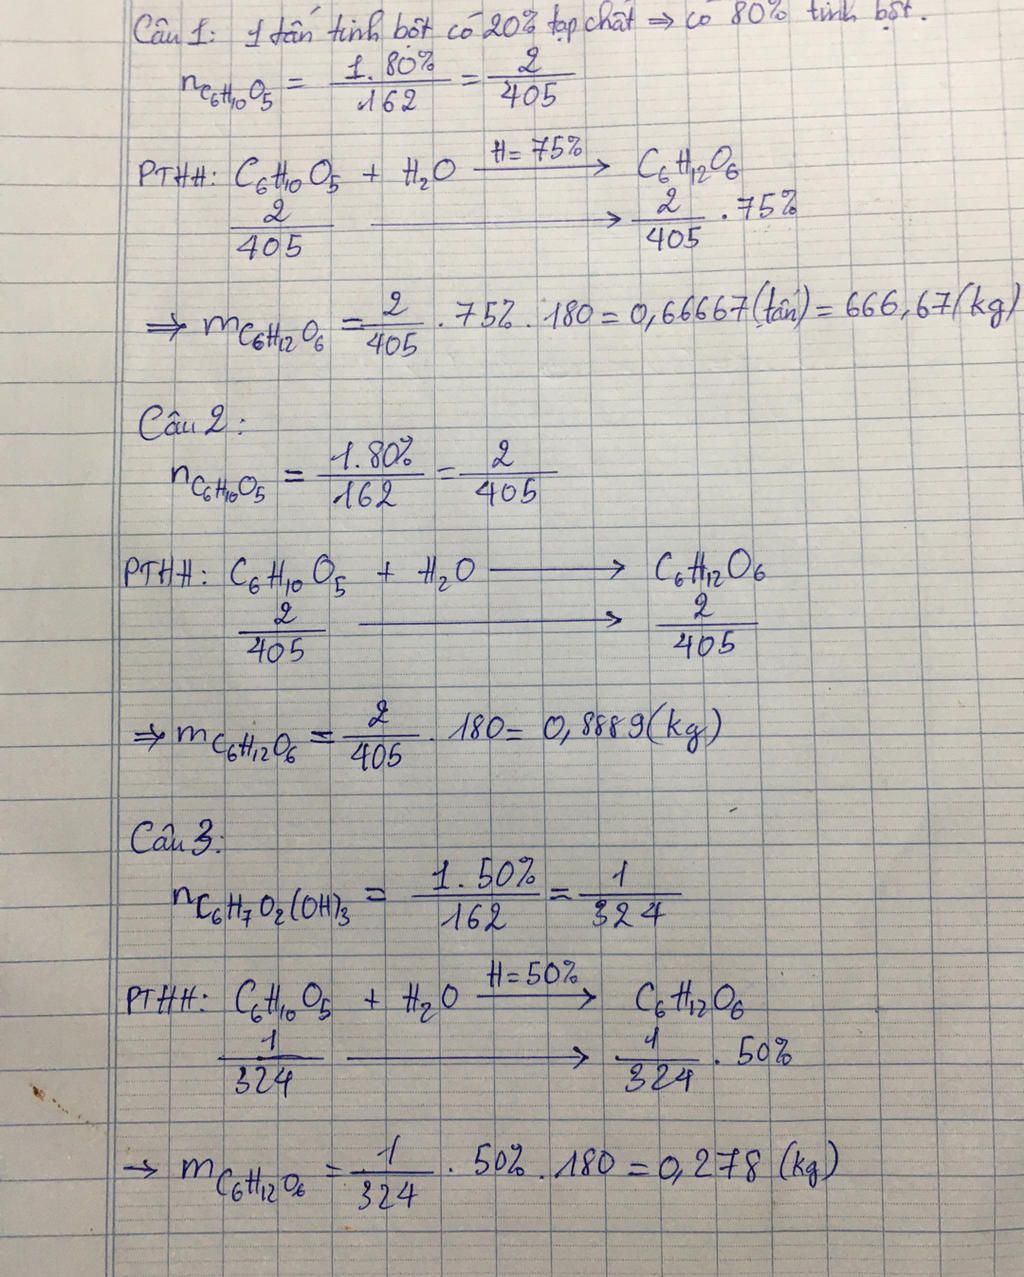 Câu 1: 1 tấn tinh bột có 20% tạp chất => có 80% tinh bột.
nC6H10O5 = 1.80%/162 = 2/405
PTHH: C6H10O5 + H2O —H=75%→ C6H12O6
2/405 → 2/405 . 75%
=> mC6H12O6 = 2/405 . 75% . 180 = 0,66667 (tấn) = 666,67 (kg)
Câu 2:
nC6H10O5 = 1.80%/162 = 2/405
PTHH: C6H10O5 + H2O → C6H12O6
2/405 → 2/405
=> mC6H12O6 = 2/405 . 180 = 0,8889 (kg)
Câu 3:
nC6H7O2(OH)3 = 1.50%/162 = 1/324
PTHH: C6H10O5 + H2O —H=50%→ C6H12O6
1/324 → 1/324 . 50%
→ mC6H12O6 = 1/324 . 50% . 180 = 0,278 (kg)